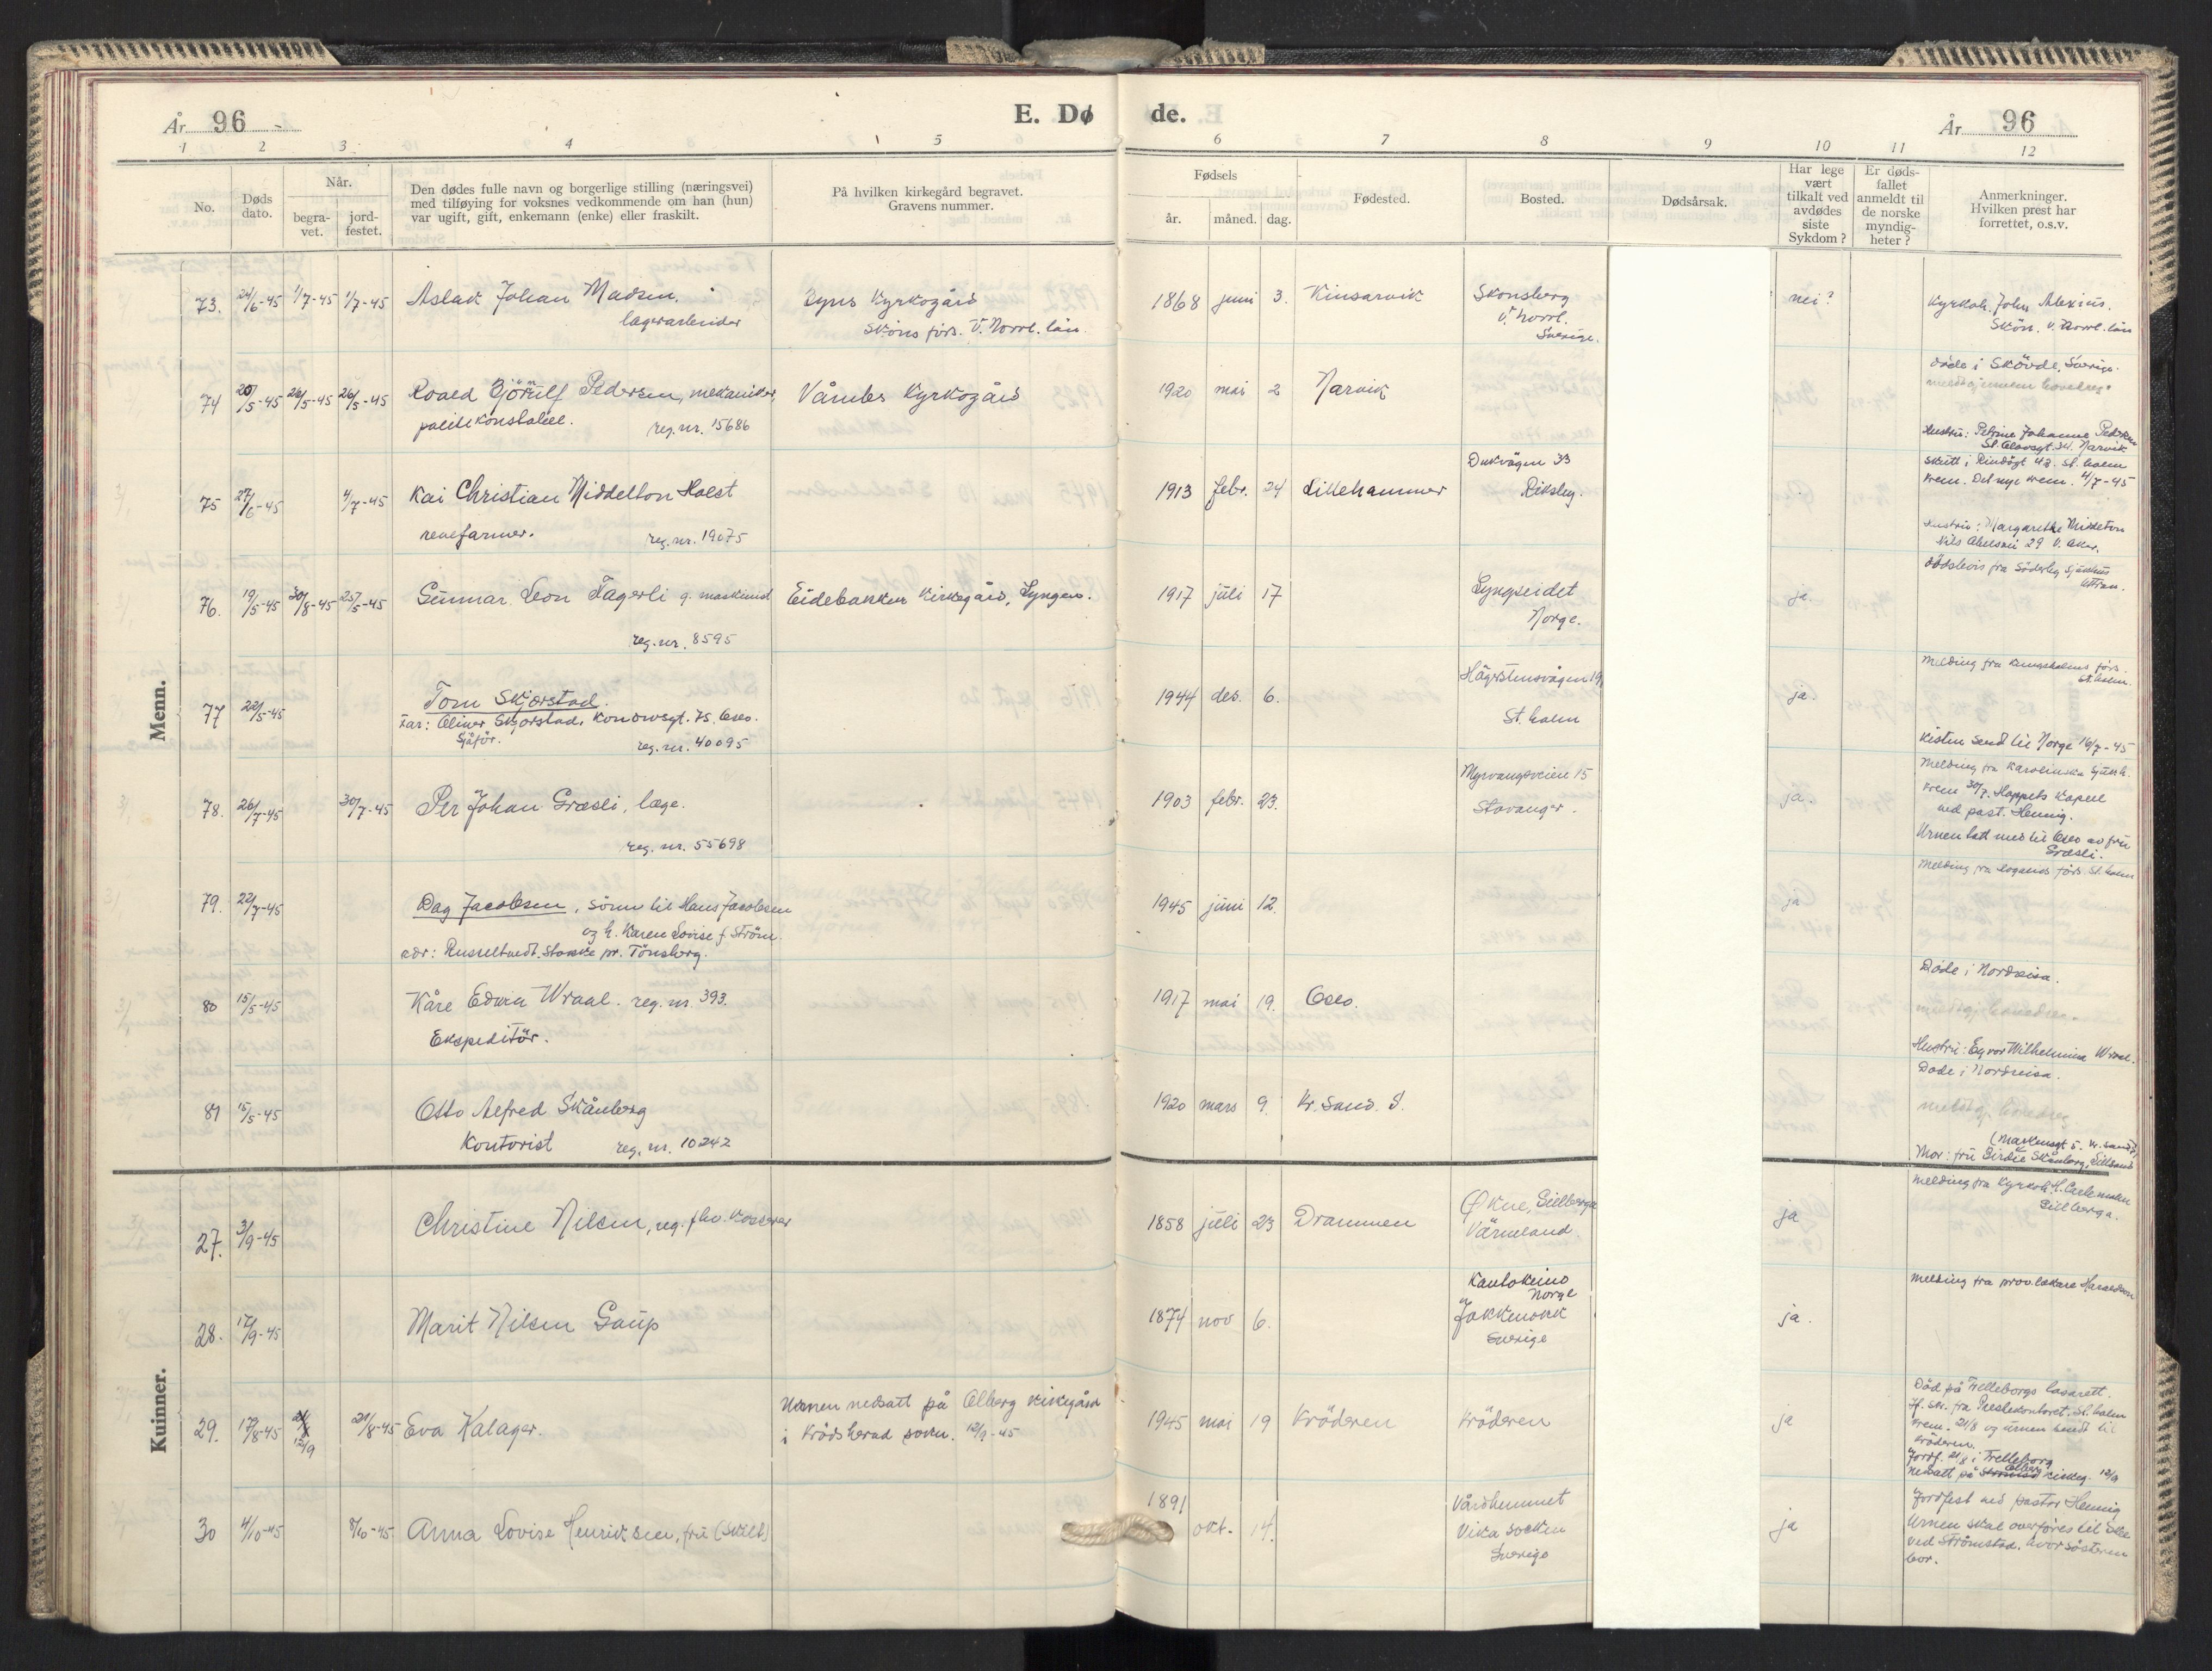 År 96
E. Dø de.
År 96
1 2 3 4 5 6 7 8 9 10 11 12
No.
Døds dato.
Når.
begra- vet.
jord- festet.
Den dødes fulle navn og borgerlige stilling (næringsvei)
med tilføying for voksnes vedkommende om han (hun)
var ugift, gift, enkemann (enke) eller fraskilt.
På hvilken kirkegård begravet.
Gravens nummer.
Fødsels
år. måned. dag.
Fødested.
Bosted.
Dødsårsak.
Har lege
vært
tilkalt ved
avdødes
siste
Sykdom?
Er døds-
fallet
anmeldt til
de norske
myndig-
heter?
Anmerkninger.
Hvilken prest har
forrettet, o.s.v.
Menn.
73. 24/6-45 1/7-45 1/7-45 Aslak Johan Madsen. Kyrkogård 1868 juni 3. Kinsarvik Skönsberg nei? Kyrkoh. John Alexius.
lagerarbeider Sköns förs. V. Norrl. län. V. Norrl. Skön. V. Norrl. län
Sverige.
døde i Skövde, Sverige.
74 20/5-45 26/5-45 26/5-45 Roald Björnulf Pedersen, mekaniker, Våmbs Kyrkogård 1920 mai 2 Narvik
politikonstabel. reg. nr. 15686
Hustru: Petrine Johanne Pedersen
St. Olavsgt. 34. Narvik
Skutt i Rindögt 42. St. holm
75 27/6-45 4/7-45 Kai Christian Middelton Holst 1913 febr. 24 Lillehammer Dukvägen 33 Krem. Det nye krem. 4/7-45
Riksby.
revefarmer. reg. nr. 19075
Hustru: Margarethe Middelton
Nils 29 V. Aker.
76. 19/5-45 30/8-45 25/5-45 Gunnar Leon Fagerli g. maskinist Eidebakken Kirkegård, Lyngen. 1917 juli 17 Lyngseidet ja. dödsbevis fra Söderby Sjukhus
Norge. Uttran.
reg. nr. 8595
77 22/5-45 Tom Skjørstad. 1944 des. 6. Hägerstensvägen 19, ja. Melding fra Kungsholms förs.
St. holm.
Far: Oliver Skjørstad, Konowsgt. 75. Oslo. St. holm
Sjåför. reg. nr. 40095
Kisten send til Norge 16/7-45
78. 26/7-45 30/7-45 Per Johan Græsli, læge. 1903 febr. 23. Myrvangsveien 15 ja. Melding fra Karolinska Sjuksh.
Stavanger. Krem 30/7. Hoppets Kapell
ved past. Hennig.
reg. nr. 55698
Urnen tatt med til Oslo av fru
Græsli.
79. 22/7-45 Dag Jacobsen, sönn til Hans Jacobsen 1945 juni 12. ja Melding fra förs. St. holm
og h. Karen Lovise f. Ström.
adr: Stokke pr. Tönsberg.
80 15/5-45 Kåre Edvin Wraal. reg. nr. 393. 1917 mai 19. Oslo. Døde i Nordreisa.
Ekspeditör.
Hustru: Wilhelmine Wraal.
81 15/5-45 Otto Alfred Skånberg 1920 mars 9. Kr. Sand. S. Døde i Nordreisa.
Kontorist reg. nr. 10242
(Markensgt 5. Kr. sand S)
Mor: fru Birdie Skånberg, Lillesand
Kuinner.
27. 3/9-45 Christine Nilsen, reg. f. hv. 1858 juli 23 Drammen Ökne, Gillberga ja Melding fra Kyrkoh.
Värmland Gillberga.
28. 17/9-45 Marit Nilsen Gaup 1874 nov 6. Kautokeino ja. Melding fra prov. läkare
Norge
Jokkmokk
Sverige
29. 17/8-45 12/9 21/8-45 Eva Kalager. Urnen nedsatt på Olberg Kirkegård 1945 mai 19 Kröderen Kröderen ja Död på Trelleborgs lasarett.
i Krödsherad sokn. 12/9-45 fra Prestekontoret, St. holm
Krem. 21/8 og urnen sendt til
Kröderen.
Jordf. 21/8 i Trelleborg
Nedsatt på Olberg kirkeg. 12/9
30 4/10-45 8/10-45 Anna Lovise Henriksen, fru (skilt) 1891 okt. 14. Vårdhemmet ja Jordfest ved pastor Hennig
Vika socken Urnen skal overføres til
Sverige ved Strömstad, hvor søsteren
bor.